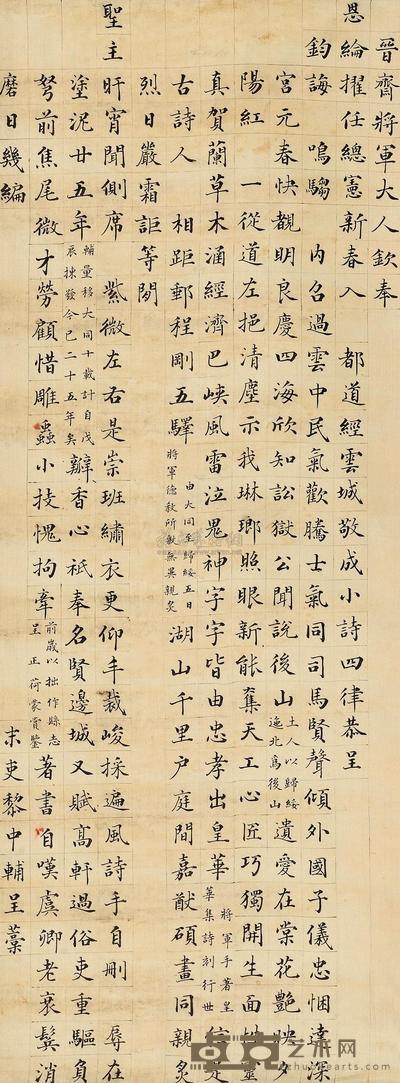 晉齋將軍大人欽奉
恩綸擢任總憲新春入 都道經雲城敬成小詩四律恭呈
鈞誨 鳴騶 內召過雲中民氣歡騰士氣同司馬賢聲傾外國子儀忠悃達深
宮元春快覩明良慶四海欣知訟獄公聞說後山土人以歸綏迤北為後山遺愛在棠花艷映夕
陽紅 一從道左挹清塵示我琳瑯照眼新能奪天工心匠巧獨開生面性靈
真賀蘭草木涵經濟巴峽風雷泣鬼神字字皆由忠孝出皇華將軍手著皇華集詩刻行世信是
古詩人 相距郵程剛五驛由大同至歸綏五日將軍德敎所敷無異親炙湖山千里戶庭間嘉猷碩畫同親炙
烈日嚴霜詎等閒
聖主旰宵聞側席 紫微左右是崇班繡衣更仰丰裁峻採遍風詩手自刪 辱在
塗泥廿五年輔量移大同十載計自戊辰揀發今已二十五年矣瓣香心祇奉名賢邊城又賦高軒過俗吏重驅負
弩前焦尾微才勞顧惜雕蟲小技愧拘牽前歲以拙作縣志呈正荷蒙賞鑒著書自嘆虞卿老衰鬢消
磨日幾編 末吏黎中輔呈藁
艺术网